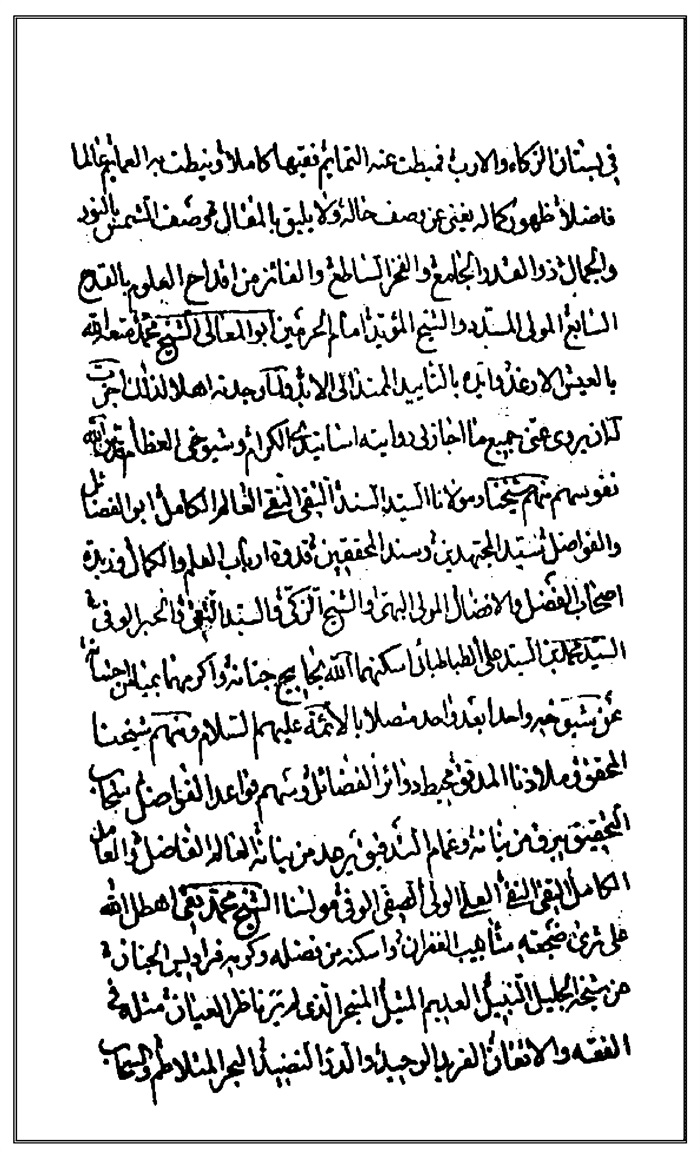 في بستان الزكاء والارب فميطت عنه التمايم فقيها كاملا ونيطت به العمايم عالما
فاضلا ظهور كماله يغني عن وصف حاله ولا يليق بالمقال توصف الشمس بالنور
والجمال ذو القدر الجامع والفخر الساطع والفائز من اقداح العلوم بالقدح
السابع المولى المسدد والشيخ المؤيد امام الحرمين ابو المعالي الشيخ محمد متعه الله
بالعيش الارغد وايده بالتاييد الممتد الى الابد ولما وجدته اهلا لذلك اجزت
له ان يروي عني جميع ما اجاز لي روايته اساتيدي الكرام وشيوخي العظام قدس الله
نفوسهم فمنهم شيخنا ومولانا السيد السند التقي النقي العالم الكامل ابو الفضائل
والفواضل سيد المجتهدين وسند المحققين قدوة ارباب العلم والكمال وزبدة
اصحاب الفضل والافضال المولى البهي والشيخ الزكي والسيد التقي والحبر الوفي
السيد محمد بن السيد علي الطباطبائي اسكنهما الله بحابيح جنانه واكرمهما بميامن احسانه
عمن سبق خبر واحدا بعد واحد متصلا بالائمة عليهم السلام ومنهم شيخنا
المحقق وملاذنا المدقق محيط دوائر الفضائل وسهم قواعد الفواضل سحاب
التحقيق يبرق من بيانه وغمام التدقيق يرعد من بنانه العالم الفاضل والعامل
الكامل التقي النقي العلي الولي الصفي الوفي مولينا الشيخ محمد تقي اهطل الله
على ثرى ضجعته شآبيب الغفران واسكنه من فضله وكرمه فراديس الجنان
عن شيخه الجليل النبيل العديم المثيل المتبحر الذي لم ير ناظر العيان مثله في
الفقه والاتقان الفريد الوحيد والدر النضيد البحر المتلاطم والسحاب